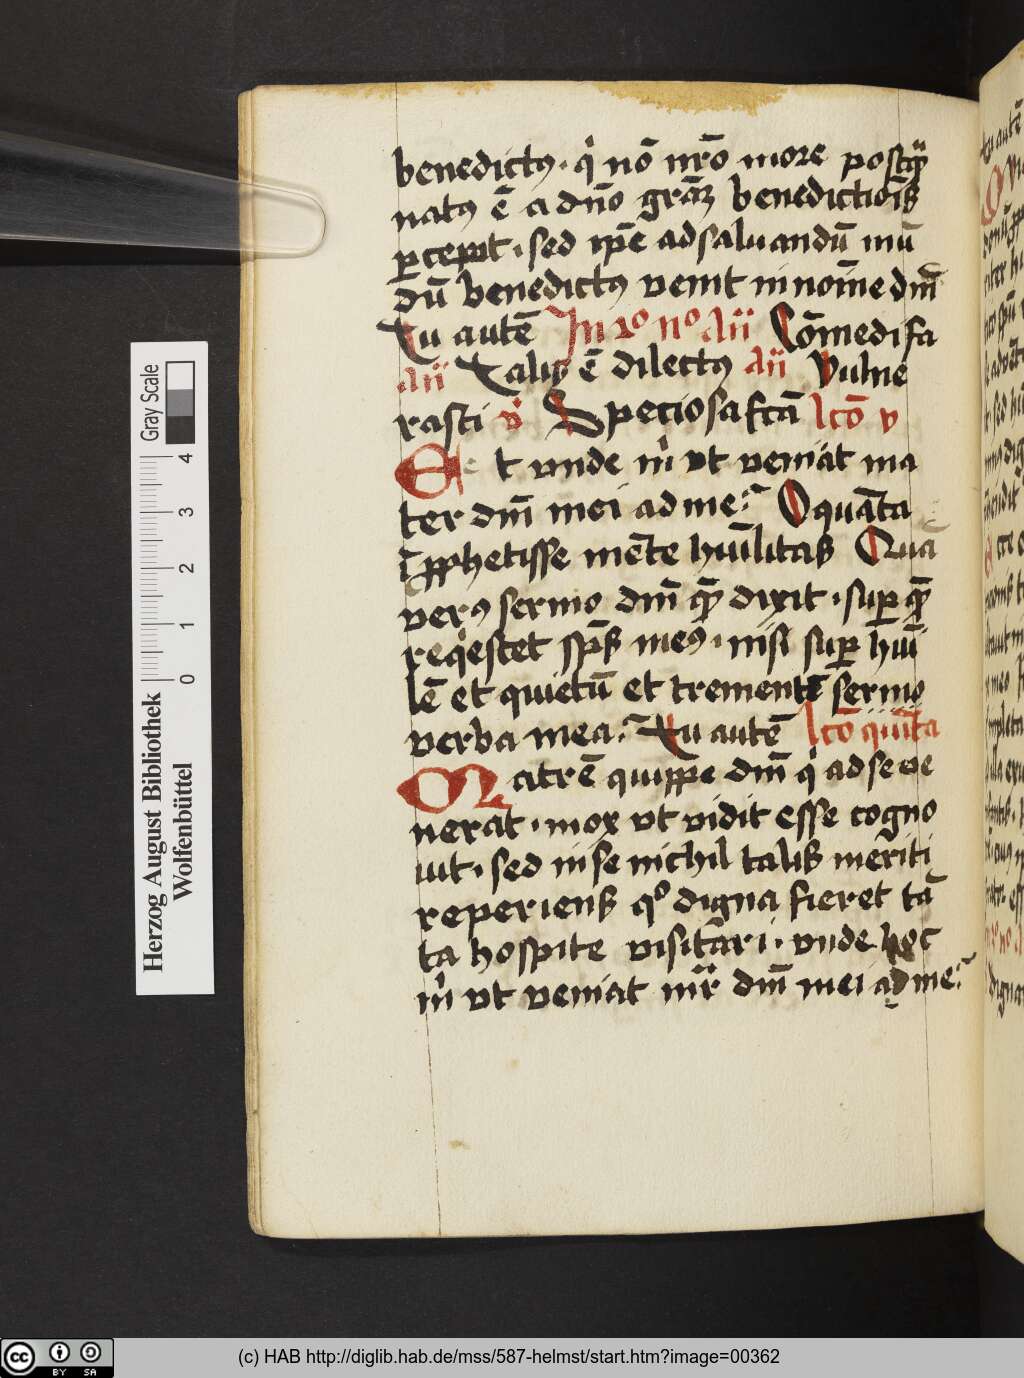 benedictꝰ · qͥ nō nr̄o more postqͣꝫ
natꝰ ē a dn̄o grāꝫ benedictiōis
ꝑcepit · sed ip̄e ad saluandū mū
dū benedictꝰ venit in noīe dn̄i
Tu autē In 2º nº añ Cōmedi fa
añ Talis ē dilectꝰ añ Vulne
rasti v̇ Speciosa fc̄a lcō v
Et vnde mͥ vt veniat ma
ter dn̄i mei ad me? O quāta
ī ꝓphetisse mēte huīlitas Quā
verꝰ sermo dn̄i qͣꝫ dixit · suꝑ quē
reqͥescet sp̄s meꝰ · nisi suꝑ huī
lē et quietū et trementē sermo
verba mea? Tu autē lcō quīta
Matrē quippe dn̄i qͥ ad se ve
nerat · mox vt vidit esse cogno
uit · sed in se nichil talis mēriti
reperiens qº digna fieret tā
ta hospite visitari · vnde hoc
mͥ vt veniat mr̄ dn̄i mei ad me?
Herzog August Bibliothek
Wolfenbüttel
Gray Scale
0 1 2 3 4
(c) HAB http://diglib.hab.de/mss/587-helmst/start.htm?image=00362
cc BY SA